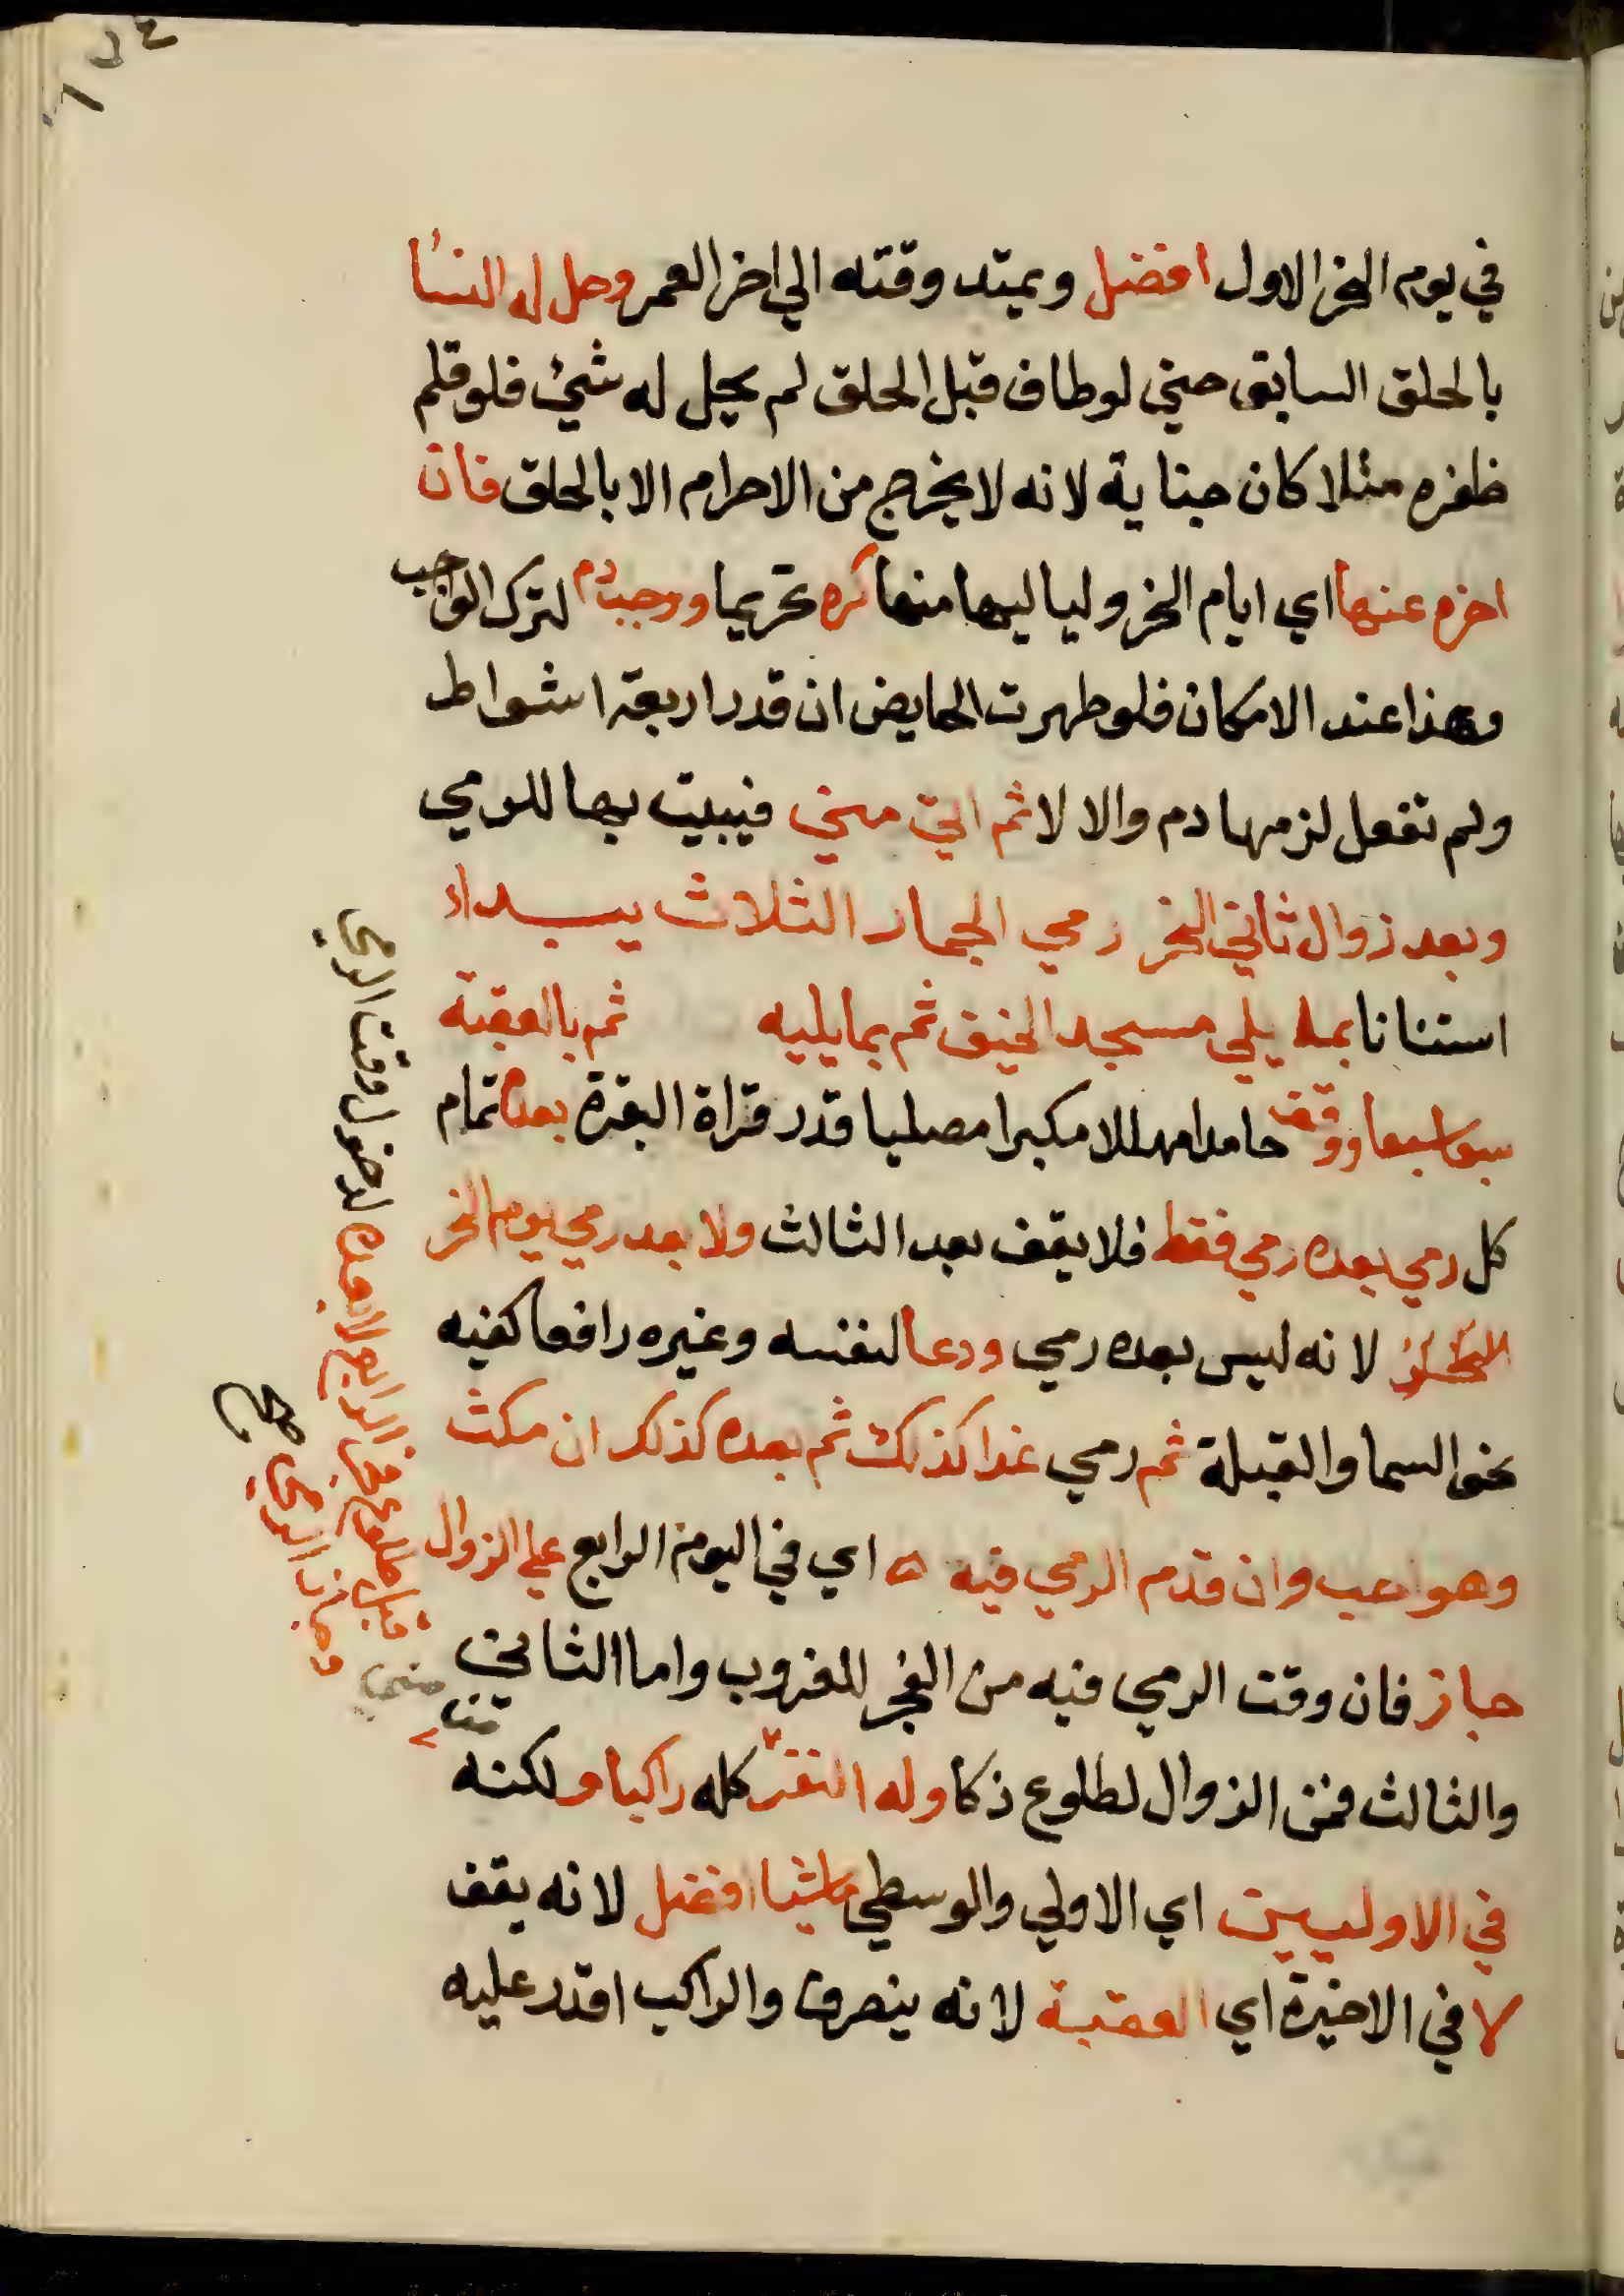 في يوم النحر الاول افضل ويمتد وقته الي اخر العمر وحل له النسا
بالحلق السابق حتي لو طاف قبل الحلق لم يحل له شيئ فلو قلم
ظفره مثلا كان جناية لانه لا يخرج من الاحرام الا بالحلق فان
اخره عنها اي ايام النحر ولياليها منها كره تحريما ووجب دم لترك الواجب
وهذا عند الامكان فلو طهرت الحايض ان قدر اربعة اشواط
ولم تفعل لزمها دم والا لا ثم اتي مني فيبيت بها للرمي
وبعد زوال ثاني النحر رمي الجمار الثلاث يبداء
استنانا بما يلي مسجد الخيف ثم بما يليه ثم بالعقبة
سبعا سبعا ووقف حامدا مهللا مكبرا مصليا قدر قراة البقرة بعد تمام
كل رمي بعده رمي فقط فلا يقف بعد الثالث ولا بعد رمي يوم النحر
لانه ليس بعده رمي ودعا لنفسه وغيره رافعا كفيه
نحو السما والقبلة ثم رمي غدا كذلك ثم بعده كذلك ان مكث
وهو احب وان قدم الرمي فيه اي في اليوم الرابع علي الزوال
جاز فان وقت الرمي فيه من الفجر للغروب واما الثاني
والثالث فمن الزوال لطلوع ذكا وله النفر من مني
قبل طلوع فجر الرابع لا بعده لدخول وقت الرمي
وجاز الرمي كله راكبا ولكنه
في الاوليين اي الاولي والوسطي ماشيا افضل لانه يقف
لا في الاخيرة اي العقبة لانه ينصرف والراكب اقدر عليه